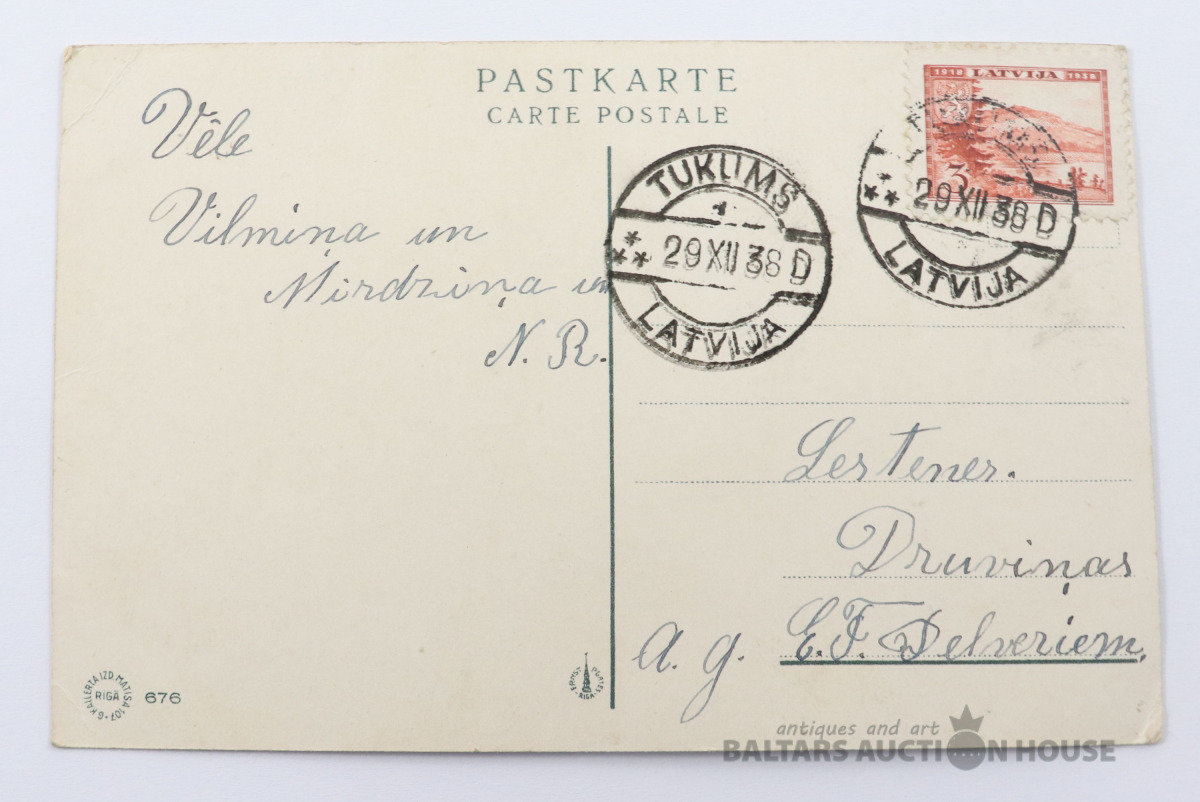 PASTKARTE
CARTE POSTALE
1918 LATVIJA 1938
3
Vēle
Vilmiņa un
Mirdziņa un
N. R.
TUKUMS
29 XII 38 D
LATVIJA
29 XII 38 D
LATVIJA
Lestener.
Druviņas
a. g. E. F. Delveriem.
G. KAILERTA IZD. MATISA 107
RIGĀ
676
ERNST PLATES
RIGA
antiques and art
BALTARS AUCTION HOUSE